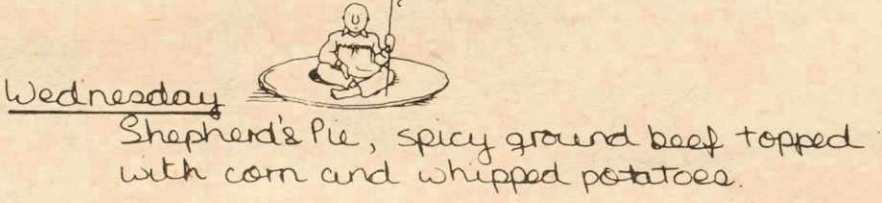 Wednesday
Shepherd's Pie, spicy ground beef topped
with corn and whipped potatoes.